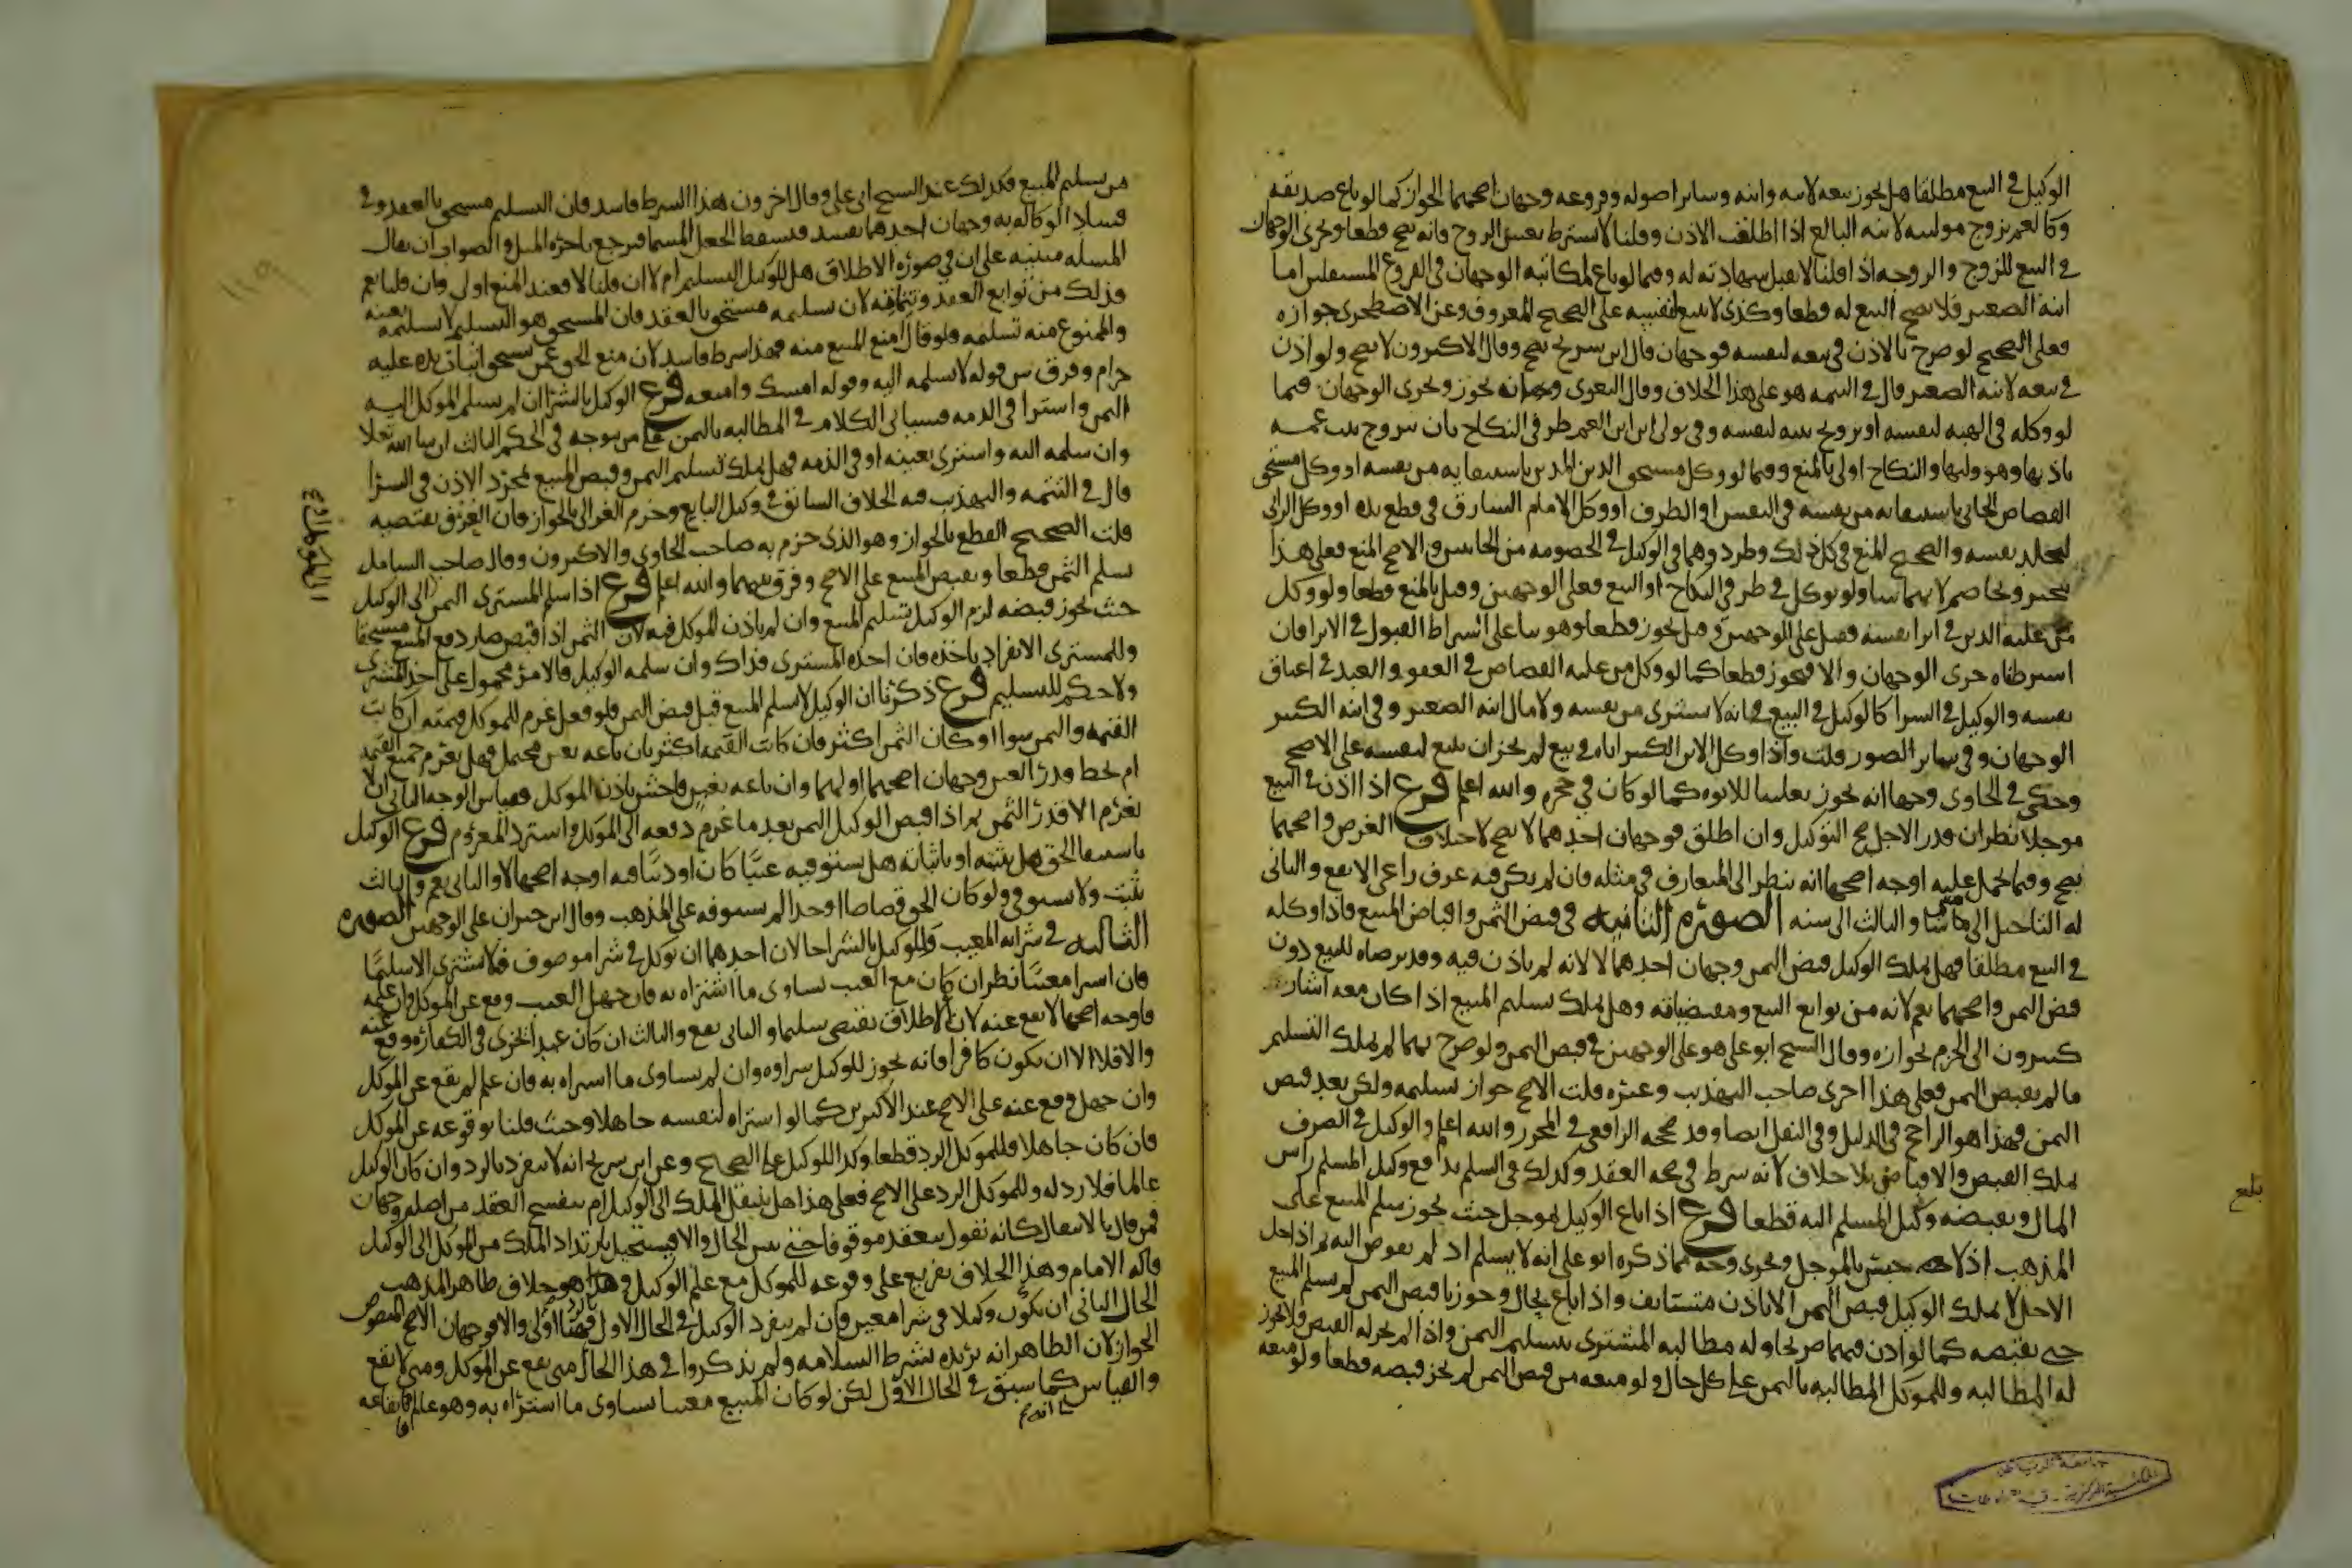 الوكيل في البيع مطلقا هل يجوز بيعه لابيه وابنه وساير اصوله وفروعه وجهان اصحهما الجواز كما لو باع صديقه
وكالعم يزوج موليته لابنه البالغ اذا اطلقت الاذن وقلنا لا يشترط تعيين الزوج فانه يصح قطعا وجرى الوجهان
في البيع للزوج والزوجه اذا قلنا لا تقبل شهادته له وفيما لو باع لمكاتبه الوجهان في الفروع المستقلين اما
ابنه الصغير فلا يصح البيع له قطعا وكذى لا يبيع لنفسه على الصحيح المعروف وعن الاصطخرى جوازه
فعلى الصحيح لو صرح بالاذن في بيعه لنفسه فوجهان قال ابن سريج يصح وقال الاكثرون لا يصح ولو اذن
في بيعه لابنه الصغير قال في التتمه هو على هذا الخلاف وقال البغوى وجب انه يجوز وجرى الوجهان فيما
لو وكله في الهبه لنفسه او تزويج بنته لنفسه وفي تولى ابن العم طرفي النكاح بان يتزوج بنت عمه
باذنها وهو وليها والنكاح اولى بالمنع وفيما لو وكل مستحق الدين المدين باستيفايه من نفسه او وكل مستحق
القصاص الجاني باستيفايه من نفسه في النفس او الطرف او وكل الامام السارق في قطع يده او وكل الزاني
ليجلد نفسه والصحيح المنع في كل ذلك وطردوهما في الوكيل في الخصومه من الجانبين والاصح المنع فعلى هذا
يتخير ويخاصم لايهما شا ولو توكل في طرفي النكاح او البيع فعلى الوجهين وقيل بالمنع قطعا ولو وكل
من عليه الدين في ابرا نفسه فقيل على الوجهين وقيل يجوز قطعا وهو بنا على اشتراط القبول في الابرا فان
اشترطناه جرى الوجهان والا فيجوز قطعا كما لو وكل من عليه القصاص في العفو والعبد في اعتاق
نفسه والوكيل في الشرا كالوكيل في البيع في انه لا يشترى من نفسه ولا مال ابنه الصغير وفي ابنه الكبير
الوجهان وفي ساير الصور قلت واذا وكل الابن الكبير اباه في بيع لم يجز ان يبيع لنفسه على الاصح
وحكى في الحاوى وجها انه يجوز تغليبا للابوه كما لو كان في حجره والله اعلم فرع اذا اذن في البيع
موجلا نظر ان قدر الاجل صح التوكيل وان اطلق فوجهان احدهما لا يصح لاختلاف الغرض واصحهما
يصح وفيما يحمل عليه اوجه اصحها انه ينظر الى المتعارف في مثله فان لم يكن فيه عرف راعى الانفع والثاني
له التاجيل الى متى شا والثالث الى سنه الصوره الثانيه في قبض الثمن واقباض المبيع فاذا وكله
في البيع مطلقا فهل يملك الوكيل قبض الثمن وجهان احدهما لا لانه لم ياذن فيه وقد يرضاه للبيع دون
قبض الثمن واصحهما نعم لانه من توابع البيع ومقتضياته وهل يملك تسليم المبيع اذا كان معه اشار
كثيرون الى الجزم بجوازه وقال الشيخ ابو على هو على الوجهين في قبض الثمن ولو صرح بهما لم يملك التسليم
ما لم يقبض الثمن فعلى هذا اجرى صاحب التهذيب وغيره قلت الاصح جواز تسليمه ولكن بعد قبض
الثمن فهذا هو الراجح في الدليل وفي النقل ايضا وقد صححه الرافعي في المحرر والله اعلم والوكيل في الصرف
يملك القبض والاقباض بلا خلاف لانه شرط في صحه العقد وكذلك في السلم يدفع وكيل المسلم راس
المال ويقبضه وكيل المسلم اليه قطعا فرع اذا باع الوكيل بموجل حيث يجوز سلم المبيع على
المذهب اذ لا حبس بالموجل وجرى وجه مما ذكره ابو على انه لا يسلم اذ لم يفوض اليه ثم اذا حل
الاجل لا يملك الوكيل قبض الثمن الا باذن مستانف واذا باع بحال وجوزنا قبض الثمن لم يسلم المبيع
حتى يقبضه كما لو اذن فيهما صريحا وله مطالبه المشترى بتسليم الثمن واذا لم يجز له القبض فلا يجوز
له المطالبه وللموكل المطالبه بالثمن على كل حال ولو منعه من قبض الثمن لم يجز قبضه قطعا ولو منعه
بلغ
من تسليم المبيع فكذلك عند الشيخ ابى على وقال اخرون هذا الشرط فاسد فان التسليم مستحق بالعقد وفي
فساد الوكاله به وجهان احدهما تفسد فيسقط الجعل المسما فيرجع باجره المثل والصواب ان يقال
المسله مبنيه على ان في صوره الاطلاق هل للوكيل التسليم ام لا ان قلنا لا فعند المنع اولى وان قلنا نعم
فذلك من توابع العقد وتتماته لان تسليمه مستحق بالعقد فان المستحق هو التسليم لا تسليمه بعينه
والممنوع منه تسلمه فلو قال امنع المبيع منه فهذا شرط فاسد لان منع الحق عمن يستحق اثبات يده عليه
حرام وفرق بين قوله لا تسلمه اليه وقوله امسك وامنعه فرع الوكيل بالشرا ان لم يسلم الموكل اليه
الثمن واشترا في الذمه فسياتى الكلام في المطالبه بالثمن على من يوجه في الحكم الثالث ان شا الله تعالا
وان سلمه اليه واشترى بعينه او في الذمه فهل يملك تسليم الثمن وقبض المبيع بمجرد الاذن في الشرا
قال في التتمه والتهذيب فيه الخلاف السابق في وكيل البايع وجزم الغزالى بالجواز فان العرف يقتضيه
قلت الصحيح القطع بالجواز وهو الذى جزم به صاحب الحاوى والاكثرون وقال صاحب الشامل
يسلم الثمن قطعا ويقبض المبيع على الاصح وفرق بينهما والله اعلم فرع اذا سلم المشترى الثمن الى الوكيل
حيث يجوز قبضه لزم الوكيل تسليم المبيع وان لم ياذن الموكل فيه لان الثمن اذا قبض صار دفع المبيع مستحقا
وللمشترى الانفراد باخذه فان اخذه المشترى فذاك وان سلمه الوكيل فالامر محمول على اخذ المشترى
ولا حكم للتسليم فرع ذكرنا ان الوكيل لا يسلم المبيع قبل قبض الثمن فلو فعل غرم للموكل قيمته ان كانت
القيمه والثمن سوا او كان الثمن اكثر فان كانت القيمه اكثر بان باعه بغبن محتمل فهل يغرم جميع القيمه
ام يحط قدر الغبن وجهان اصحهما اولهما وان باعه بغبن فاحش باذن الموكل فقياس الوجه الثاني ان لا
يغرم الا قدر الثمن ثم اذا قبض الوكيل الثمن بعد ما غرم دفعه الى الموكل واسترد المغروم فرع الوكيل
باستيفا الحق هل يثبته او باثباته هل يستوفيه عينا كان او دينا فيه اوجه اصحها لا والثاني نعم والثالث
يثبت ولا يستوفي ولو كان الحق قصاصا او حدا لم يستوفه على المذهب وقال ابن خيران على الوجهين الصوره
الثالثه في شرايه المعيب وللوكيل بالشرا حالان احدهما ان يوكل في شرا موصوف فلا يشترى الا سليما
فان اشترا معيبا نظر ان كان مع العيب يساوى ما اشتراه به فان جهل العيب وقع عن الموكل وان علمه
فاوجه اصحها لا يقع عنه لان الاطلاق يقتضى سليما والثاني يقع والثالث ان كان عبدا يجزى في الكفاره وقع عنه
والا فلا الا ان يكون كافرا فانه يجوز للوكيل شراوه وان لم يساوى ما اشتراه به فان علم لم يقع عن الموكل
وان جهل وقع عنه على الاصح عند الاكثرين كما لو اشتراه لنفسه جاهلا وحيث قلنا بوقوعه عن الموكل
فان كان جاهلا فللموكل الرد قطعا وكذا للوكيل على الصحيح وعن ابن سريج انه لا ينفرد بالرد وان كان الوكيل
عالما فلا رد له وللموكل الرد على الاصح فعلى هذا هل ينتقل الملك الى الوكيل ام ينفسخ العقد من اصله وجهان
فمن قال بالانتقال كانه يقول ينعقد موقوفا حتى يتبين الحال والا فيستحيل ارتداد الملك من الموكل الى الوكيل
قاله الامام وهذا الخلاف تفريع على وقوعه للموكل مع علم الوكيل وهذا هو خلاف ظاهر المذهب
الحال الثاني ان يكون وكيلا في شرا معين فان لم ينفرد الوكيل في الحال الاول بالرد فهنا اولى والا فوجهان الاصح المنصوص
الجواز لان الظاهر انه يريده بشرط السلامه ولم يذكروا في هذا الحال متى يقع عن الموكل ومتى لا يقع
والقياس انه كما سبق في الحال الاول لكن لو كان المبيع معيبا يساوى ما اشتراه به وهو عالم فايقاعه